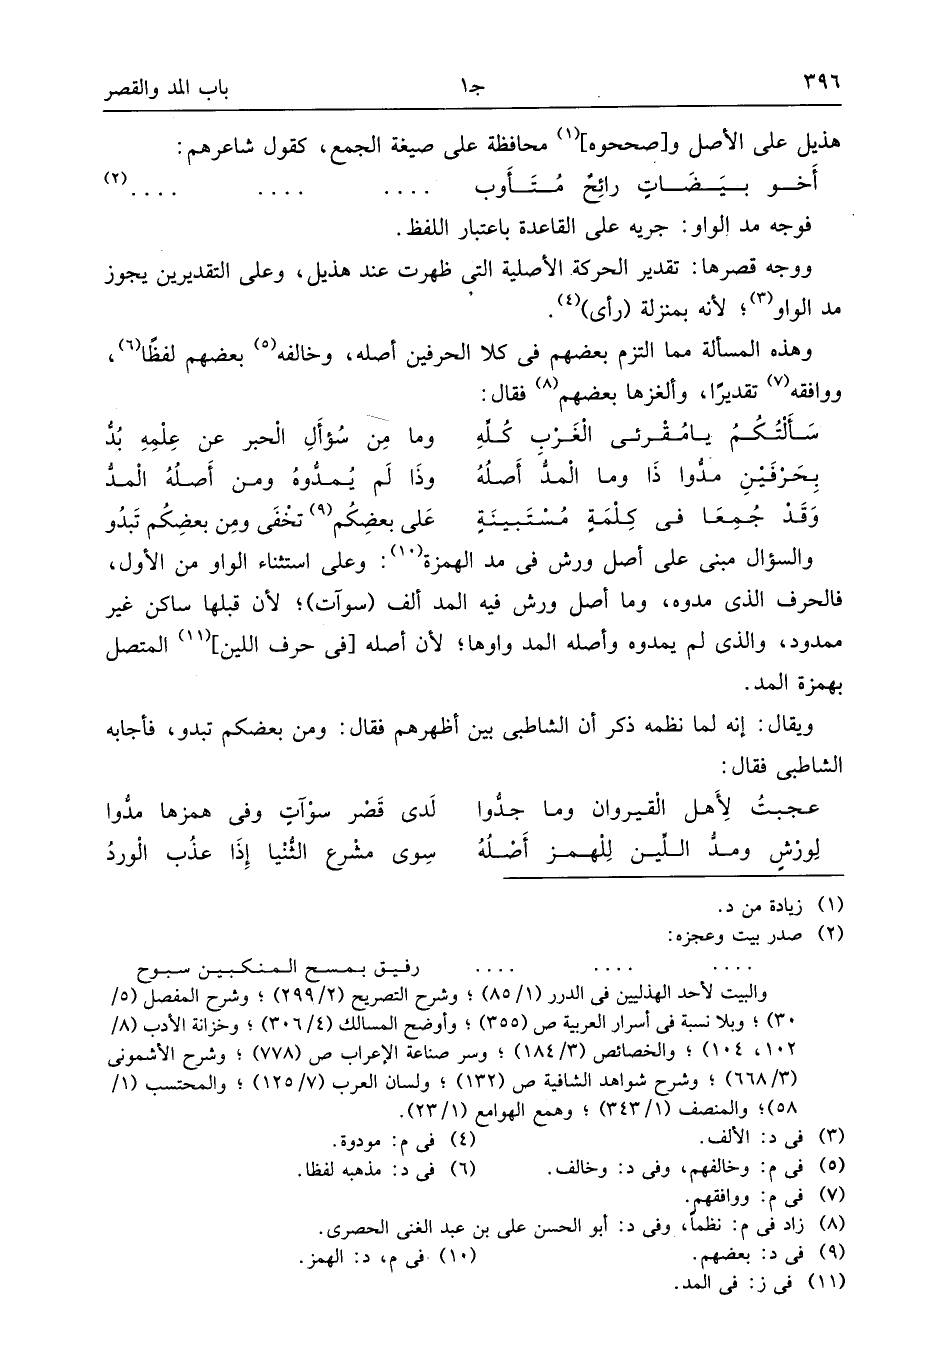 ٣٩٦ ج١ باب المد والقصر
هذيل على الأصل و[صححوه](١) محافظة على صيغة الجمع، كقول شاعرهم:
أَخـو بـيَـضَـاتٍ رائِحٌ مُـتَـأَوب .... .... ....(٢)
فوجه مد الواو: جريه على القاعدة باعتبار اللفظ.
ووجه قصرها: تقدير الحركة الأصلية التى ظهرت عند هذيل، وعلى التقديرين يجوز
مد الواو(٣)؛ لأنه بمنزلة (رأى)(٤).
وهذه المسألة مما التزم بعضهم فى كلا الحرفين أصله، وخالفه(٥) بعضهم لفظًا(٦)،
ووافقه(٧) تقديرًا، وألغزها بعضهم(٨) فقال:
سَـأَلْتُـكُـمُ يـامُـقْـرئـى الْغَـرْبِ كُـلِّهِ وما مِن سُؤَالِ الحبر عن عِلْمِهِ بُدُّ
بِحَرْفَيْنِ مدُّوا ذَا وما المدُّ أَصلُهُ وذَا لَم يُـمـدُّوهُ ومـن أَصلُهُ الْمـدُّ
وَقَدْ جُمِعَا فـى كِلْمَةٍ مُسْتَبينَةٍ عَلى بعضِكُم(٩) تَخْفَى ومِن بعضِكُم تَبدُو
والسؤال مبنى على أصل ورش فى مد الهمزة(١٠): وعلى استثناء الواو من الأول،
فالحرف الذى مدوه، وما أصل ورش فيه المد ألف (سوآت)؛ لأن قبلها ساكن غير
ممدود، والذى لم يمدوه وأصله المد واوها؛ لأن أصله [فى حرف اللين](١١) المتصل
بهمزة المد.
ويقال: إنه لما نظمه ذكر أن الشاطبى بين أظهرهم فقال: ومن بعضكم تبدو، فأجابه
الشاطبى فقال:
عـجـبتُ لِأَهـل الْقيروان وما جدُّوا لَدى قَصْر سوْآتٍ وفى همزها مدُّوا
لِورْشٍ ومـدُّ الـلِّيـن لِلْهـمـز أَصْـلُهُ سِوى مشْرع الثُّنْيا إِذَا عذُب الْوردُ
(١) زيادة من د.
(٢) صدر بيت وعجزه:
.... .... .... رفـيـق بـمـسـح الـمـنـكـبـيـن سـبـوح
والبيت لأحد الهذليين فى الدرر (١/ ٨٥) ؛ وشرح التصريح (٢/ ٢٩٩) ؛ وشرح المفصل (٥/
٣٠) ؛ وبلا نسبة فى أسرار العربية ص (٣٥٥) ؛ وأوضح المسالك (٤/ ٣٠٦) ؛ وخزانة الأدب (٨/
١٠٢، ١٠٤) ؛ والخصائص (٣/ ١٨٤) ؛ وسر صناعة الإعراب ص (٧٧٨) ؛ وشرح الأشمونى
(٣/ ٦٦٨) ؛ وشرح شواهد الشافية ص (١٣٢) ؛ ولسان العرب (٧/ ١٢٥) ؛ والمحتسب (١/
٥٨)؛ والمنصف (١/ ٣٤٣) ؛ وهمع الهوامع (١/ ٢٣).
(٣) فى د: الألف. (٤) فى م: مودوة.
(٥) فى م: وخالفهم، وفى د: وخالف. (٦) فى د: مذهبه لفظا.
(٧) فى م: ووافقهم.
(٨) زاد فى م: نظماً، وفى د: أبو الحسن على بن عبد الغنى الحصرى.
(٩) فى د: بعضهم. (١٠) فى م، د: الهمز.
(١١) فى ز: فى المد.